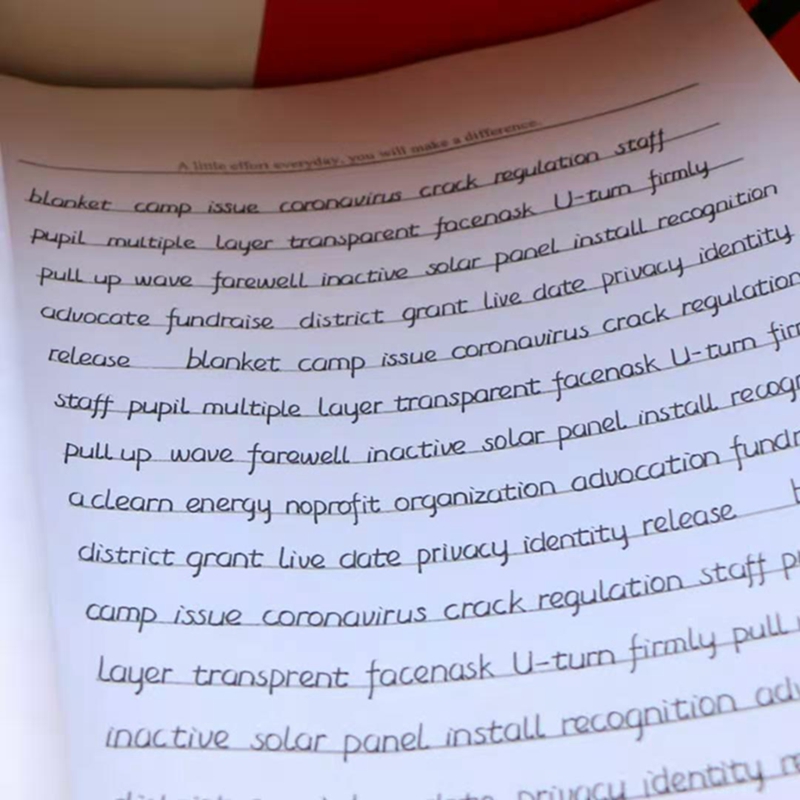 A little effort everyday, you will make a difference.
blanket camp issue coronavirus crack regulation staff
pupil multiple layer transparent facenask U-turn firmly
pull up wave farewell inactive solar panel install recognition
advocate fundraise district grant live date privacy identity
release blanket camp issue coronavirus crack regulation
staff pupil multiple layer transparent facenask U-turn fir
pull up wave farewell inactive solar panel install recogn
aclearn energy noprofit organization advocation fundr
district grant live date privacy identity release
camp issue coronavirus crack regulation staff
layer transprent facenask U-turn firmly pull
inactive solar panel install recognition adv
privacy identity